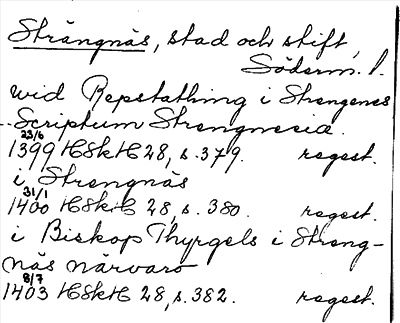 Strängnäs, stad och stift,
Söderm. l.
wid Repstathing i Strengenes
Scriptum Strengnesia.
23/6
1399 HSkH 28, s. 379. regest.
i Strengnäs
31/1
1400 HSkH 28, s. 380. regest.
i Biskop Thyrgels i Streng-
näs närvaro
8/7
1403 HSkH 28, s. 382. regest.